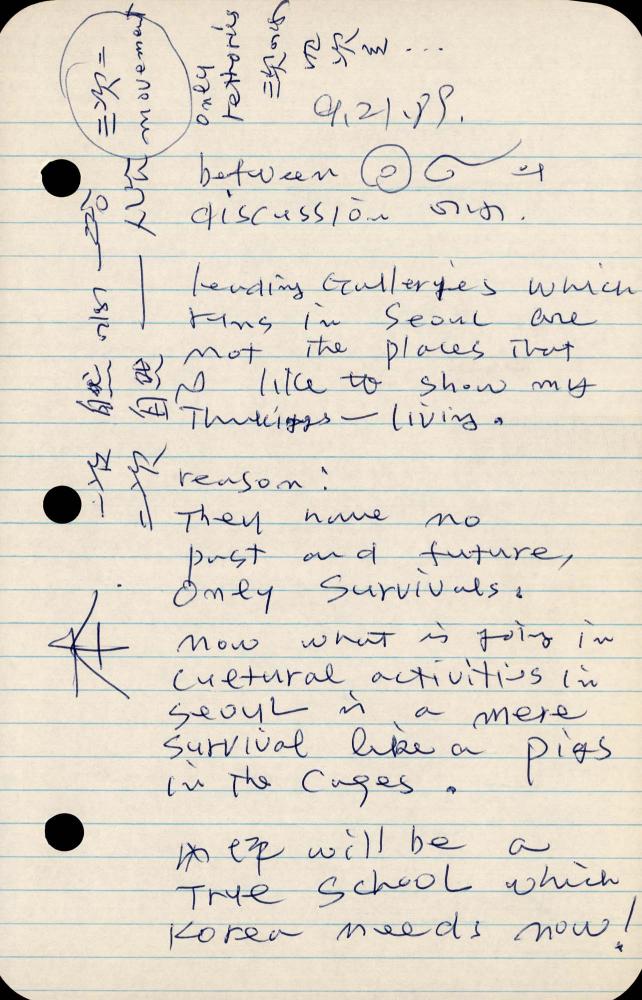 movement
only
rethorics
9.21.89.
between
discussion
leading Galleryes which
runs in Seoul are
not the places that
I like to show my
Thinkings — living.
reason:
They have no
past and future,
only survivals.
now what is going in
cultural activities in
seoul is a mere
survival like a pigs
in the cages.
will be a
True school which
Korea needs now!
自然
自然